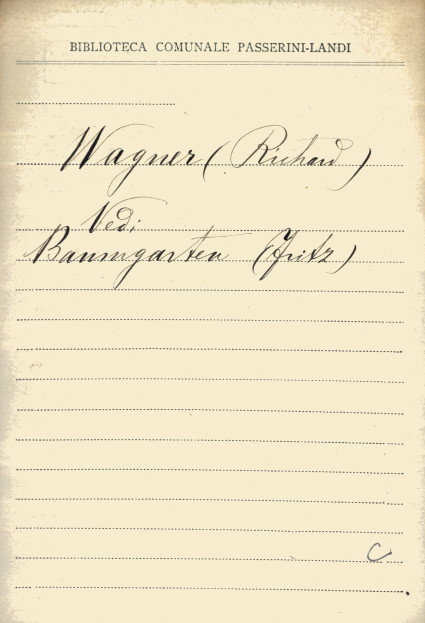 BIBLIOTECA COMUNALE PASSERINI-LANDI
Wagner (Richard)
Vedi
Baumgarten (Fritz)
C